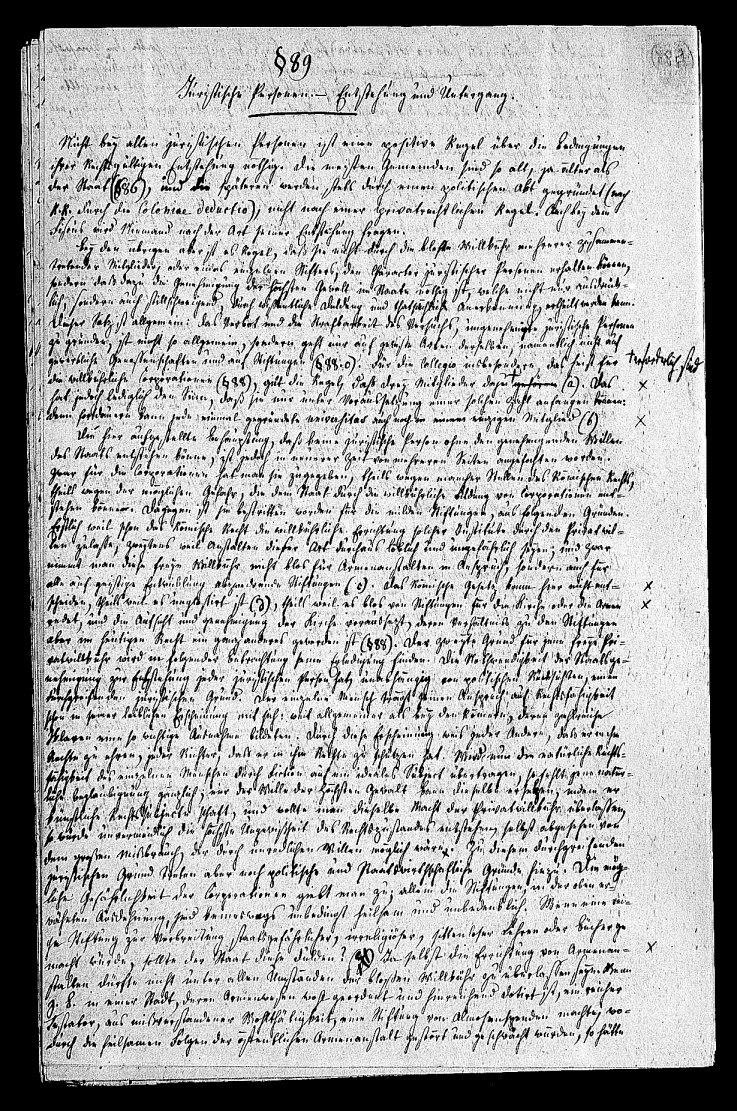 § 89
Juristische Personen. – Entstehung und Untergang.
Nicht bey allen juristischen Personen ist eine positive Regel über die Bedingungen
ihrer rechtsgültigen Entstehung nöthig. Die meisten Gemeinden sind so alt, ja älter als
der Staat (§ 86), und die späteren werden stets durch einen politischen Akt gegründet (nach
R.R. durch die Coloniae deductio), nicht nach einer privatrechtlichen Regel. Auch bey dem
Fiscus wird Niemand nach der Art seiner Entstehung fragen.
Bey den übrigen aber ist es Regel, daß sie nicht durch die bloße Willkühr mehrerer zusammen-
tretender Mitglieder, oder eines einzelnen Stifters, den Character juristischer Personen erhalten können,
sondern daß dazu die Genehmigung der höchsten Gewalt im Staate nöthig ist, welche nicht nur ausdrück-
lich, sondern auch stillschweigend, durch wissentliche Duldung und thatsächliche Anerkennung, ertheilt werden kann.
Dieser Satz ist allgemein: das Verbot und die Strafbarkeit des Versuchs, ungenehmigte juristische Personen
zu gründen, ist nicht so allgemein, sondern geht nur auf gewisse Arten derselben, namentlich nicht auf
gewerbliche Genossenschaften und auf Stiftungen (§ 88). Für die Collegia insbesondere, das heißt für
erforderlich sind
die willkührliche Corporationen (§ 88), gilt die Regel, daß drey Mitglieder dazu (a). Das
hat jedoch lediglich den Sinn, daß sie nur unter Voraussetzung einer solchen Zahl anfangen können:
denn fortdauern kann jede einmal gegründete universitas auch noch in einem einzigen Mitglied (b).
Die hier aufgestellte Behauptung, daß keine juristische Person ohne den genehmigenden Willen
des Staats entstehen könne, ist jedoch in neuerer Zeit von mehreren Seiten angefochten worden.
Zwar für die Corporationen hat man sie zugegeben, theils wegen mancher Stellen des Römischen Rechts,
theils wegen der möglichen Gefahr, die dem Staat durch die willkührliche Bildung von Corporationen ent-
stehen könne. Dagegen ist sie bestritten worden für die milden Stiftungen, aus folgenden Gründen.
Erstlich weil schon das Römische Recht die willkührliche Errichtung solcher Institute durch den Privatwil-
len zulasse, zweytens weil Anstalten dieser Art durchaus löblich und ungefährlich seyen; und zwar
nimmt man diese freye Willkühr nicht blos für Armenanstalten in Anspruch, sondern auch für
alle auf geistige Entwicklung abzweckende Stiftungen (c). Das Römische Gesetz kann hier nicht ent-
scheiden, theils weil es unglossirt ist (d), theils weil es blos von Stiftungen für die Kirche oder die Armen
redet, und die Aufsicht und Genehmigung der Kirche voraussetzt, deren Verhältniß zu den Stiftungen
aber im heutigen Recht ein ganz anderes geworden ist (§ 88). Der zweyte Grund für jene freye Pri-
vatwillkühr wird in folgender Betrachtung seine Erledigung finden. Die Nothwendigkeit der Staatsge-
nehmigung zur Entstehung jeder juristischen Person hat, unabhängig von politischen Rücksichten, einen
durchgreifenden juristischen Grund. Der einzelne Mensch trägt seinen Anspruch auf Rechtsfähigkeit
schon in seiner leiblichen Erscheinung mit sich: weit allgemeiner als bey den Römern, deren zahlreiche
Sklaven eine so wichtige Ausnahme bildeten. Durch diese Erscheinung weiß jeder Andere, daß er eigene
Rechte zu ehren, jeder Richter, daß er in ihm Rechte zu schützen hat. Wird nun die natürliche Rechts-
fähigkeit des einzelnen Menschen durch Fiction auf ein ideales Subject übertragen, so fehlt jene natür-
liche Beglaubigung gänzlich; nur der Wille der höchsten Gewalt kann dieselbe ersetzen, indem er
künstliche Rechtssubjecte schafft, und wollte man dieselbe Macht der Privatwillkühr überlassen,
so würde unvermeidlich die höchste Ungewißheit des Rechtszustandes entstehen, selbst abgesehen von
dem großen Misbrauch, der durch unredlichen Willen möglich wäre. Zu diesem durchgreifenden
juristischen Grund treten aber noch politische und staatswirthschaftliche Gründe hinzu. Die mög-
liche Gefährlichkeit der Corporationen giebt man zu; allein die Stiftungen, in der oben er-
wähnten Ausdehnung, sind keineswegs unbedingt heilsam und unbedenklich. Wenn eine rei-
che Stiftung zur Verbreitung staatsgefährlicher, irreligiöser, sittenloser Lehren oder Bücher ge-
macht würde, sollte der Staat diese dulden? Ja selbst die Errichtung von Armenan-
stalten dürfte nicht unter allen Umständen der bloßen Willkühr zu überlassen seyn. Wenn
z. B. in einer Stadt, deren Armenwesen wohl geordnet und hinreichend dotirt ist, ein reicher
Testator, aus misverstandener Wohlthätigkeit, eine Stiftung von Almosenspenden machte, wo-
durch die heilsamen Folgen der öffentlichen Armenanstalt gestört und geschwächt würden, so hätte